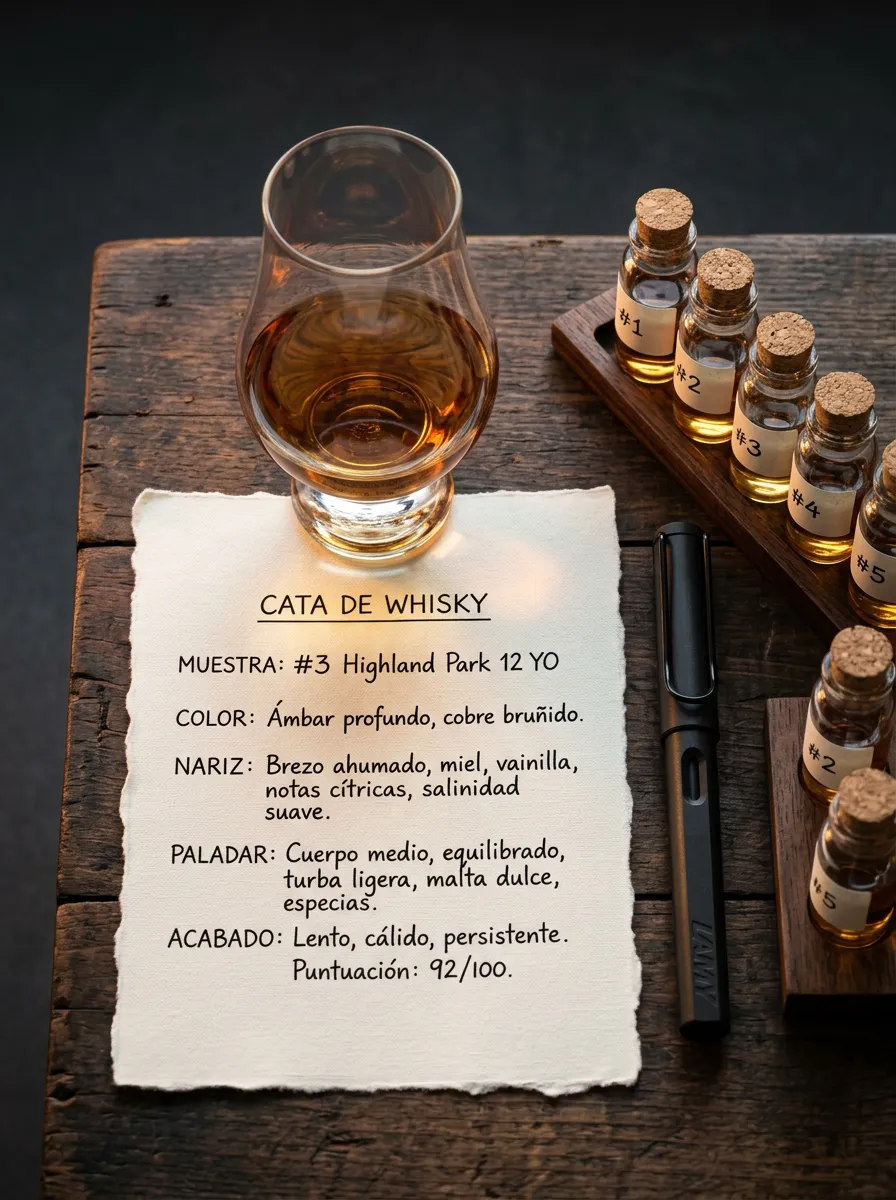 CATA DE WHISKY
MUESTRA: #3 Highland Park 12 YO
COLOR: Ámbar profundo, cobre bruñido.
NARIZ: Brezo ahumado, miel, vainilla,
notas cítricas, salinidad
suave.
PALADAR: Cuerpo medio, equilibrado,
turba ligera, malta dulce,
especias.
ACABADO: Lento, cálido, persistente.
Puntuación: 92/100.
#1
#2
#3
#4
#5
#2
#5
LAMY